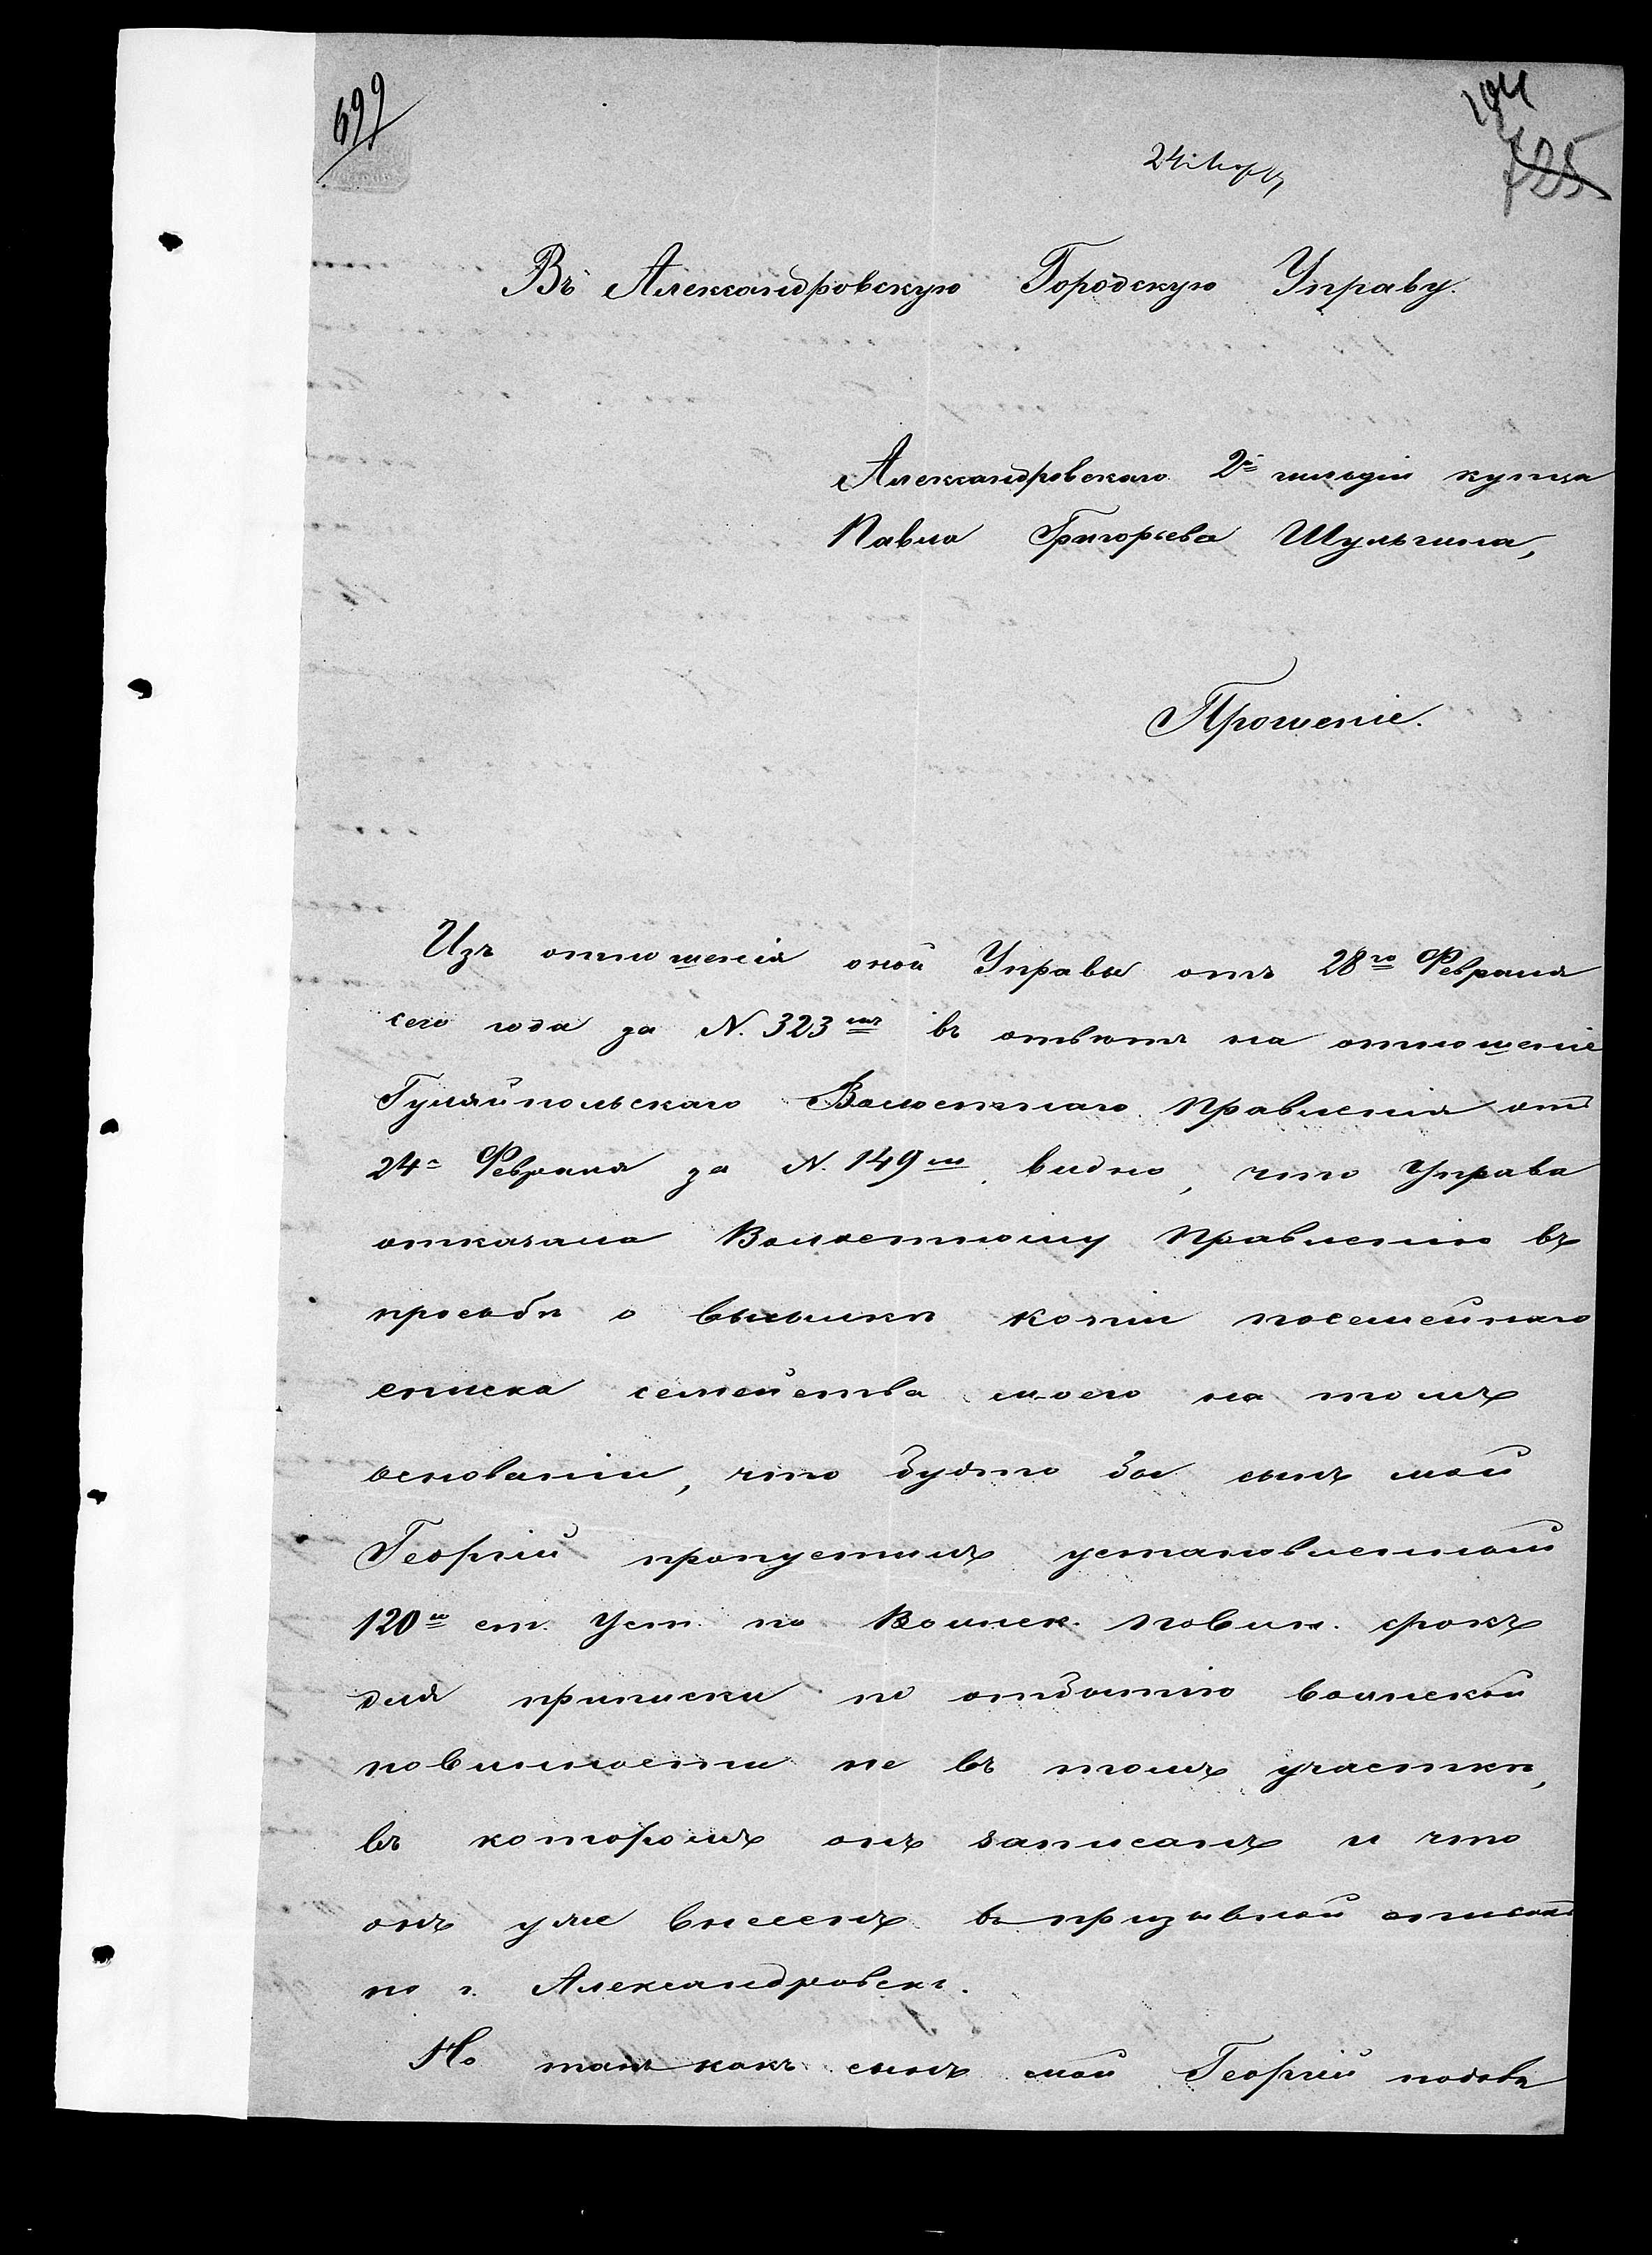 699
194
725
24 Марта
Въ Александровскую Городскую Управу.
Александровскаго 2й гильдіи купца
Павла Григорьева Шульгина,
Прошеніе.
Изъ отношенія оной Управы отъ 28го Февраля
сего года за N. 323мъ въ отвѣтъ на отношеніе
Гуляйпольскаго Волостнаго Правленія отъ
24го Февраля за N. 149м, видно, что Управа
отказала Волостному Правленію въ
просьбѣ о высылкѣ копіи посемейнаго
списка семейства моего на томъ
основаніи, что будто бы сынъ мой
Георгій пропустилъ установленный
120ю ст. Уст. по Воинск. повин. срокъ
для приписки по отбытію воинской
повинности не въ томъ участкѣ,
въ которомъ онъ записанъ и что
онъ уже внесенъ въ призывной списокъ
по г. Александровску.
Но такъ какъ сынъ мой Георгій подавъ